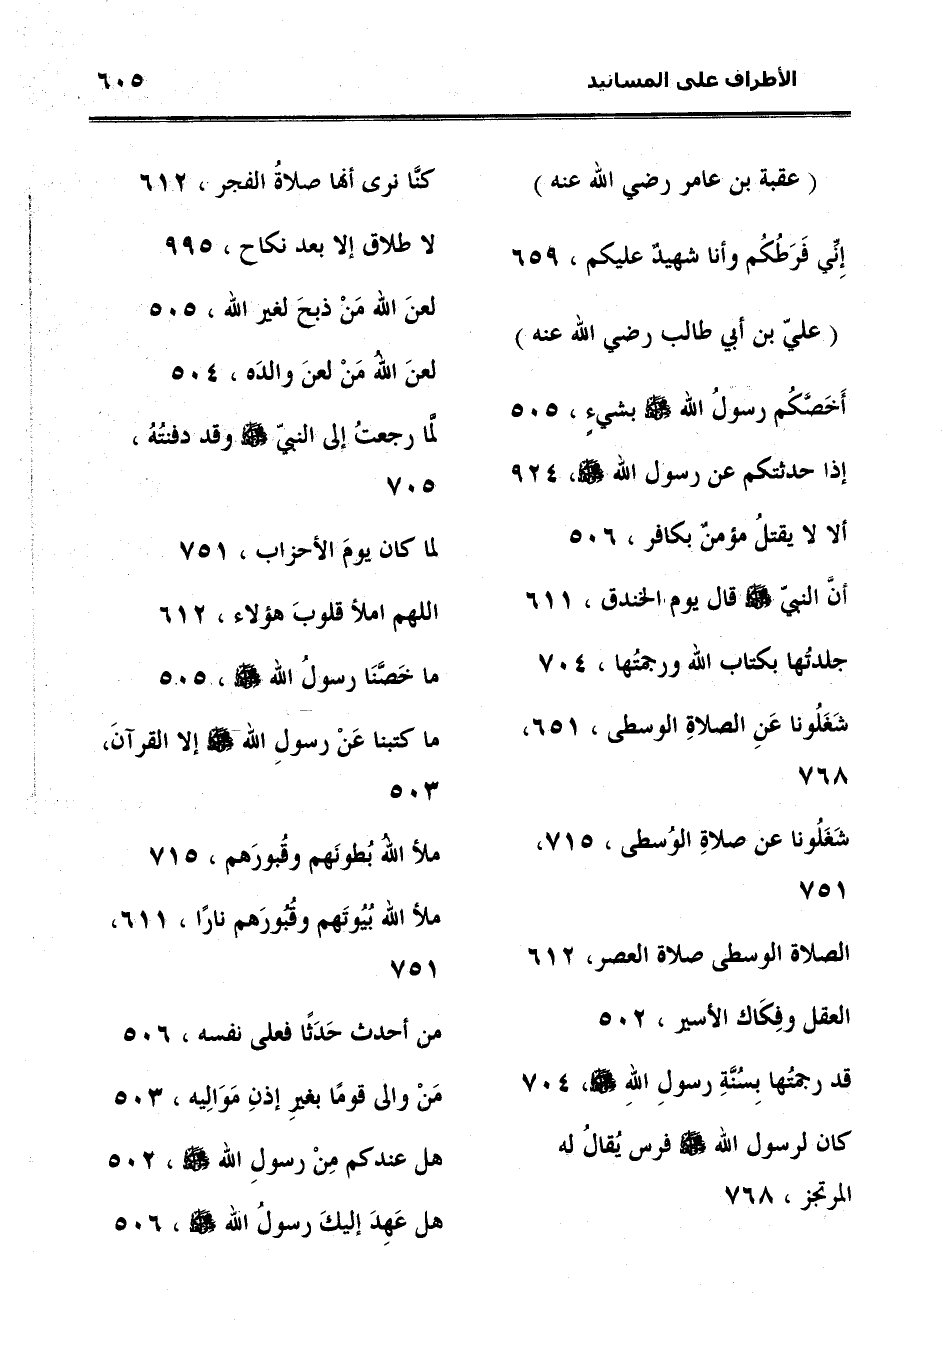 الأطراف على المسانيد
٦٠٥
( عقبة بن عامر رضي الله عنه )
إنِّي فَرَطُكُم وأنا شهيدٌ عليكم ، ٦٥٩
( عليّ بن أبي طالب رضي الله عنه )
أَخَصَّكُم رسولُ الله ﷺ بشيءٍ ، ٥٠٥
إذا حدثتكم عن رسول الله ﷺ، ٩٢٤
ألا لا يقتلُ مؤمنٌ بكافر ، ٥٠٦
أنَّ النبيّ ﷺ قال يوم الخندق ، ٦١١
جلدتُها بكتاب الله ورجمتُها ، ٧٠٤
شَغَلُونا عَنِ الصلاةِ الوسطى ، ٦٥١،
٧٦٨
شَغَلُونا عن صلاةِ الوُسطى ، ٧١٥،
٧٥١
الصلاة الوسطى صلاة العصر، ٦١٢
العقل وفِكَاك الأسير ، ٥٠٢
قد رجمتُها بِسُنَّةِ رسولِ اللهِ ﷺ، ٧٠٤
كان لرسول الله ﷺ فرس يُقالُ له
المرتجز ، ٧٦٨
كنَّا نرى أنها صلاةُ الفجر ، ٦١٢
لا طلاق إلا بعد نكاح ، ٩٩٥
لعنَ الله مَنْ ذبحَ لغير الله ، ٥٠٥
لعنَ اللهُ مَنْ لعنَ والدَه ، ٥٠٤
لَّما رجعتُ إلى النبيّ ﷺ وقد دفنتُهُ ،
٧٠٥
لما كان يومَ الأحزاب ، ٧٥١
اللهم املأ قلوبَ هؤلاء ، ٦١٢
ما خَصَّنَا رسولُ الله ﷺ ، ٥٠٥
ما كتبنا عَنْ رسولِ الله ﷺ إلا القرآنَ،
٥٠٣
ملأ اللهُ بُطونَهم وقُبورَهم ، ٧١٥
ملأ الله بُيُوتَهم وقُبُورَهم نارًا ، ٦١١،
٧٥١
من أحدث حَدَثًا فعلى نفسه ، ٥٠٦
مَنْ والى قومًا بغيرِ إذنِ مَوَالِيه ، ٥٠٣
هل عندكم مِنْ رسولِ الله ﷺ ، ٥٠٢
هل عَهِدَ إليكَ رسولُ الله ﷺ ، ٥٠٦